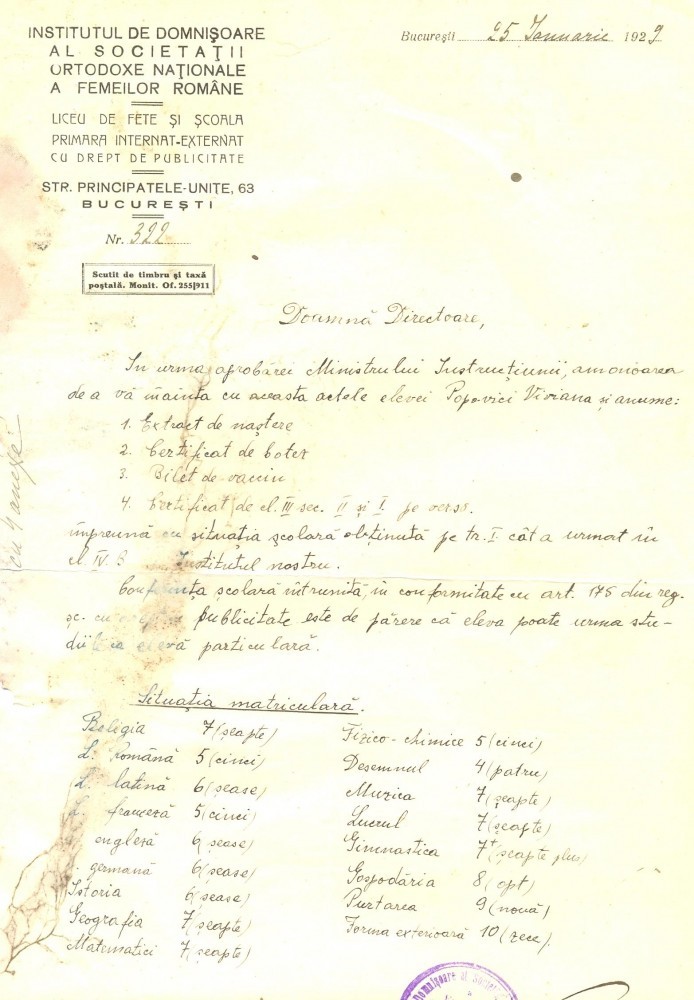 INSTITUTUL DE DOMNIŞOARE
AL SOCIETAŢII
ORTODOXE NAŢIONALE
A FEMEILOR ROMÂNE
LICEU DE FETE ŞI ŞCOALA
PRIMARA INTERNAT-EXTERNAT
CU DREPT DE PUBLICITATE
STR. PRINCIPATELE-UNITE, 63
BUCUREŞTI
Nr. 322
Scutit de timbru şi taxă
poştală. Monit. Of. 255|911
Bucureşti 25 Ianuarie 1929
Doamnă Directoare,
In urma aprobărei Ministrului Instrucţiunii, am onoarea
de a vă înainta cu aceasta actele elevei Popovici Viviana şi anume:
1. Extract de naştere
2. Certificat de botez
3. Bilet de vaccin
4. Certificat de cl. III sec. II şi I. pe verso.
împreună cu situaţia şcolară obţinută pe tr. I. cât a urmat în
cl. IV. B Institutul nostru.
Conferinţa şcolară întrunită, in conformitate cu art. 175 din reg.
şc. cu publicitate este de părere că eleva poate urma stu-
diile ca elevă particulară.
cu 4 anexe
Situaţia matriculară.
Religia 7 (şeapte)
L. Română 5 (cinci)
L. latină 6 (şease)
L. franceză 5 (cinci)
engleză 6 (şease)
germană 6 (şease)
Istoria 6 (şease)
Geografia 7 (şeapte)
Matematici 7 (şeapte)
Fizico-chimice 5 (cinci)
Desemnul 4 (patru)
Muzica 7 (şeapte)
Lucrul 7 (şeapte)
Gimnastica 7+ (şeapte plus)
Gospodăria 8 (opt)
Purtarea 9 (nouă)
Forma exterioară 10 (zece).
Domnişoare al Societ